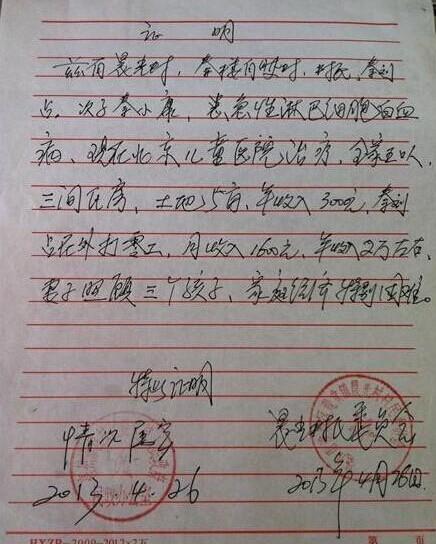 证 明
兹有晨光村,秦楼自然村,村民,秦刘
占,次子秦小康,患急性淋巴细胞白血
病,现在北京儿童医院治疗,全家五口人,
三间住房,土地15亩,年收入3000元,秦刘
占在外打零工,月收入1600元,年收入2万左右,
妻子照顾三个孩子,家庭经济特别困难。
特此证明
情况属实
村民委员会
2013.4.26
2013年4月26日
HXZP-2009-2012×2万
第 页